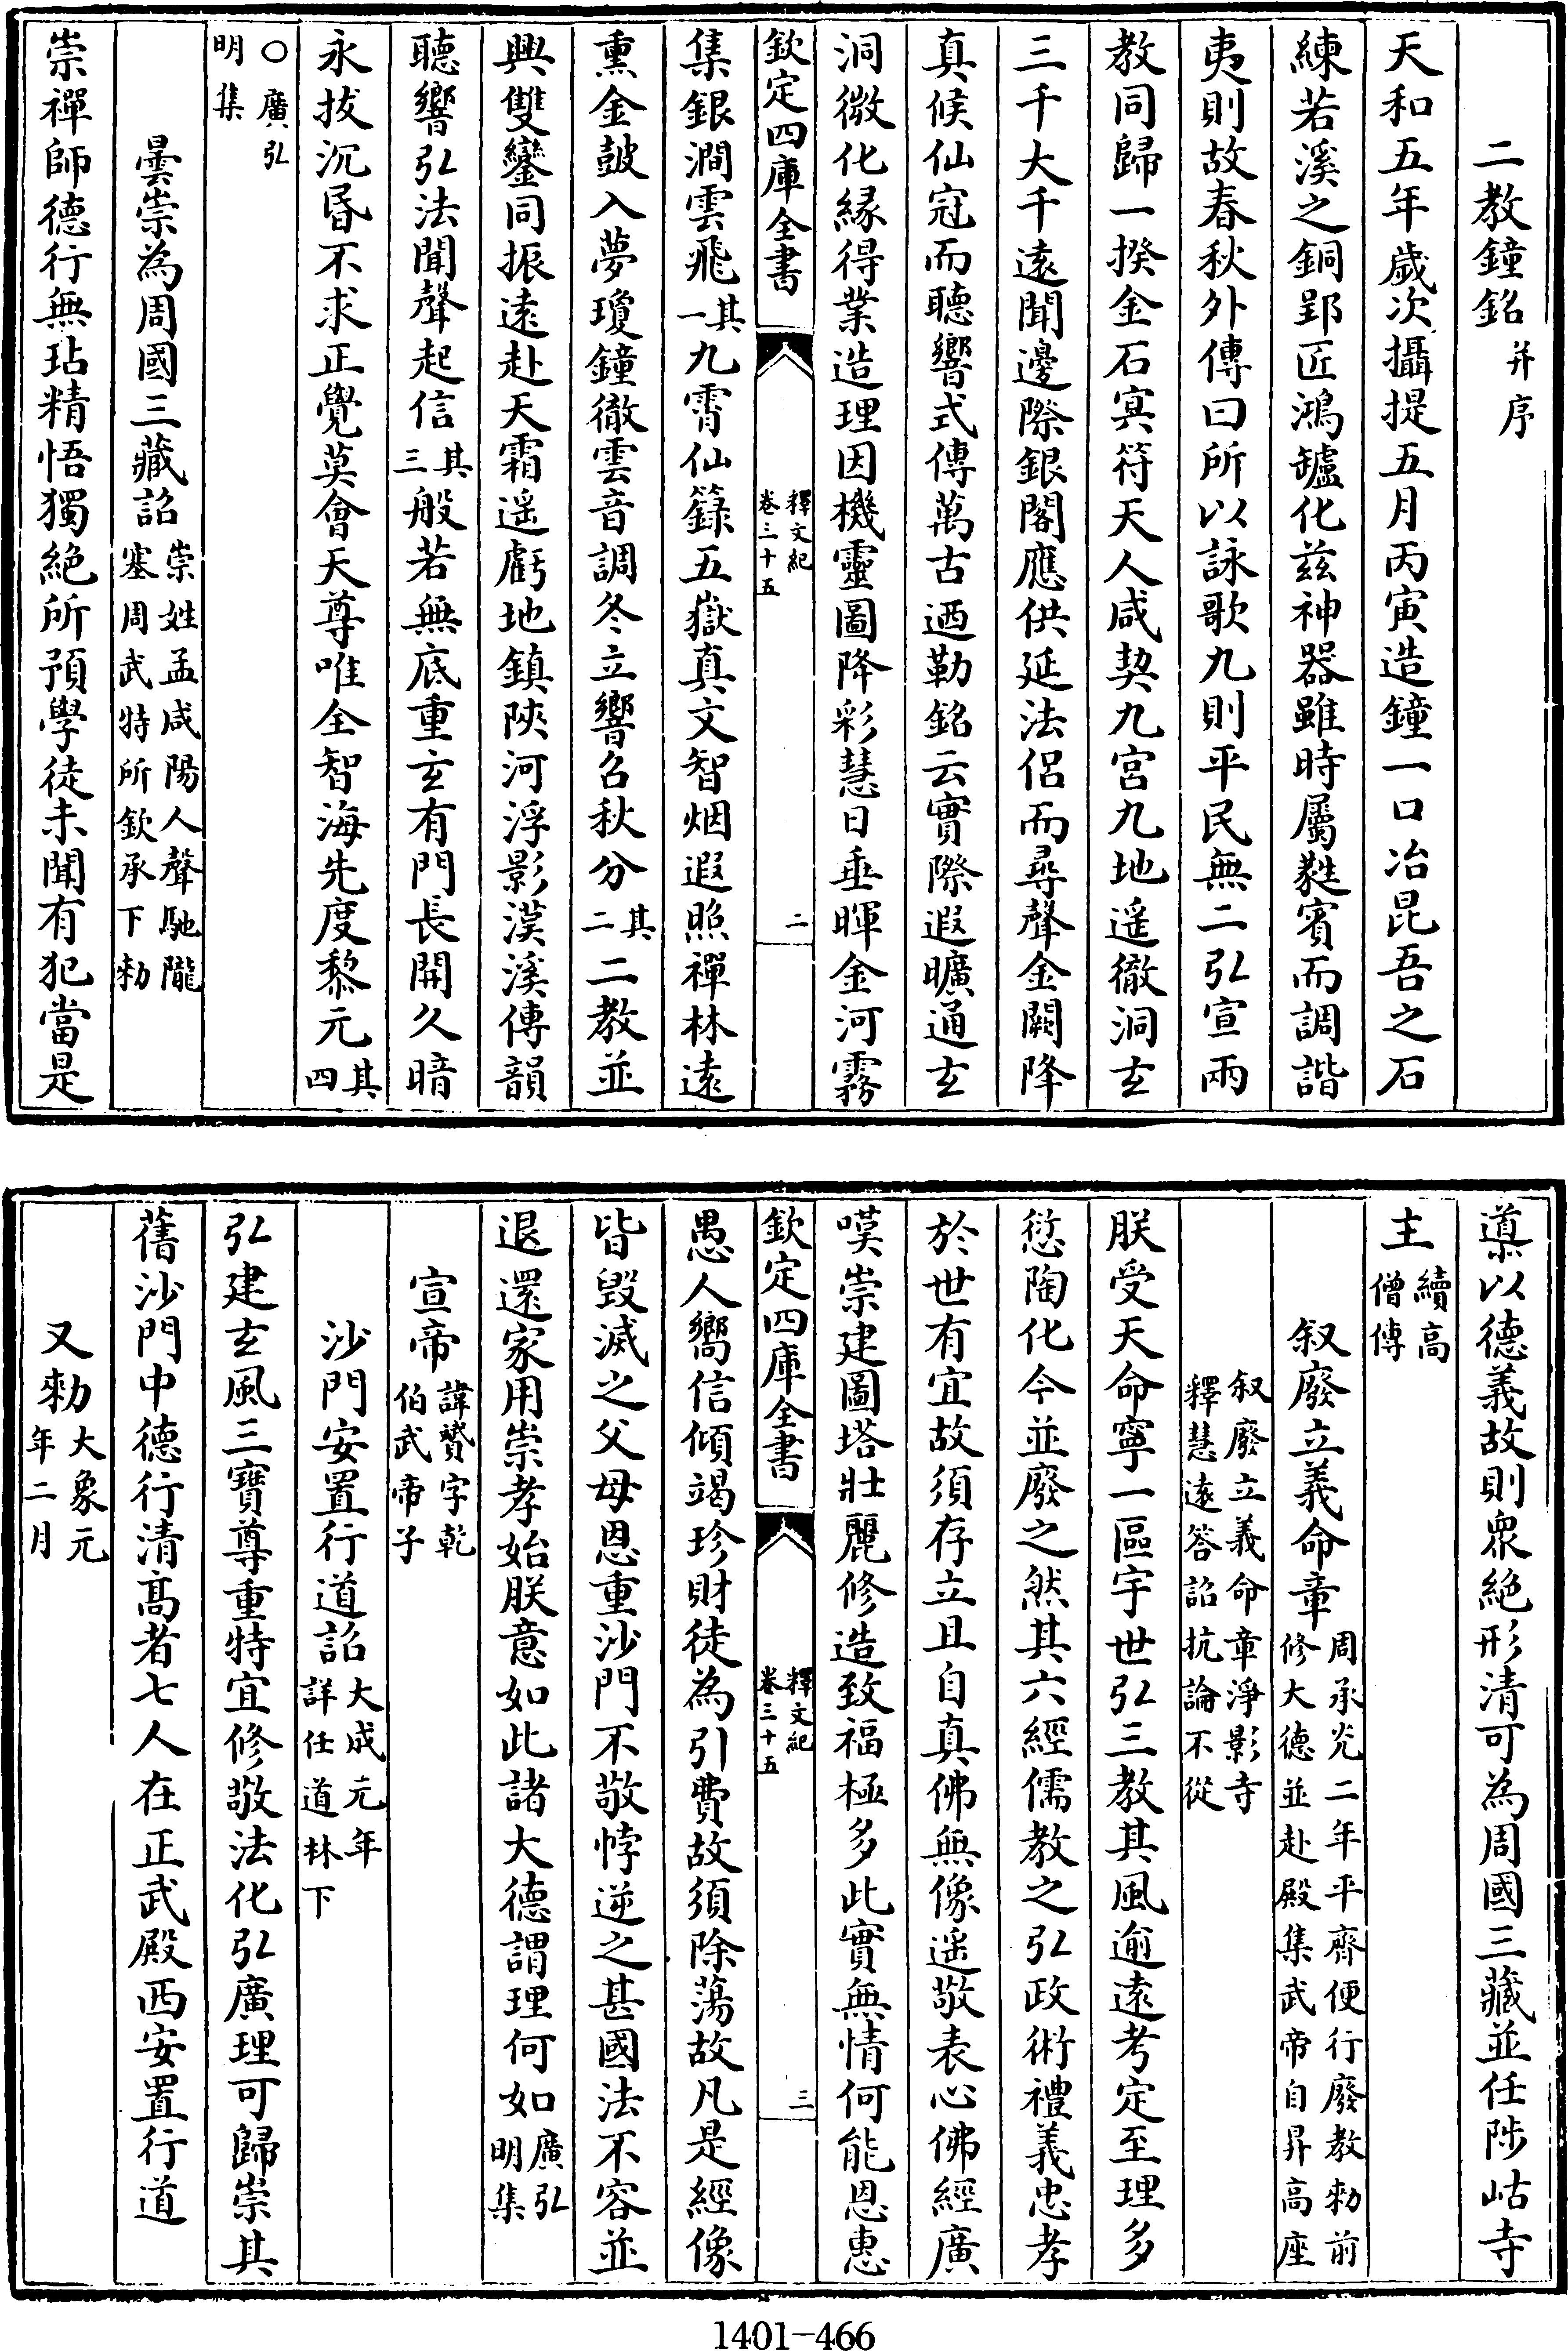 二教鐘銘并序
天和五年歲次攝提五月丙寅造鐘一口冶昆吾之石
練若溪之銅郢匠鴻罏化兹神器雖時屬蕤賓而調諧
夷則故春秋外傳曰所以詠歌九則平民無二弘宣兩
教同歸一揆金石冥符天人咸契九宮九地遥徹洞玄
三千大千遠聞邊際銀閣應供延法侣而尋聲金闕降
真候仙冠而聽響式傳萬古迺勒銘云實際遐曠通玄
洞微化縁得業造理因機靈圖降彩慧日垂暉金河霧
欽定四庫全書
釋文紀
卷三十五
二
集銀澗雲飛其一九霄仙籙五嶽真文智烟遐照禪林遠
熏金鼓入夢瓊鐘徹雲音調冬立響召秋分其二二教並
興雙鑾同振遠赴天霜遥虧地鎮陝河浮影漢溪傳韻
聽響弘法聞聲起信其三般若無底重玄有門長開久暗
永拔沉昏不求正覺莫會天尊唯全智海先度黎元其四
○廣弘明集
曇崇為周國三藏詔崇姓孟咸陽人聲馳隴塞周武特所欽承下勅
崇禪師德行無玷精悟獨絶所預學徒未聞有犯當是
導以德義故則衆絶形清可為周國三藏並任陟岵寺
主續高僧傳
叙廢立義命章周承光二年平齊便行廢教勅前修大德並赴殿集武帝自昇高座
叙廢立義命章淨影寺釋慧遠答詔抗論不從
朕受天命寧一區宇世弘三教其風逾遠考定至理多
愆陶化今並廢之然其六經儒教之弘政術禮義忠孝
於世有宜故須存立且自真佛無像遥敬表心佛經廣
嘆崇建圖塔壯麗修造致福極多此實無情何能恩惠
欽定四庫全書
釋文紀
卷三十五
三
愚人嚮信傾竭珍財徒為引費故須除蕩故凡是經像
皆毁滅之父母恩重沙門不敬悖逆之甚國法不容並
退還家用崇孝始朕意如此諸大德謂理何如廣弘明集
宣帝諱贇字乾伯武帝子
沙門安置行道詔大成元年詳任道林下
弘建玄風三寶尊重特宜修敬法化弘廣理可歸崇其
舊沙門中德行清高者七人在正武殿西安置行道
又勅大象元年二月
1401-466